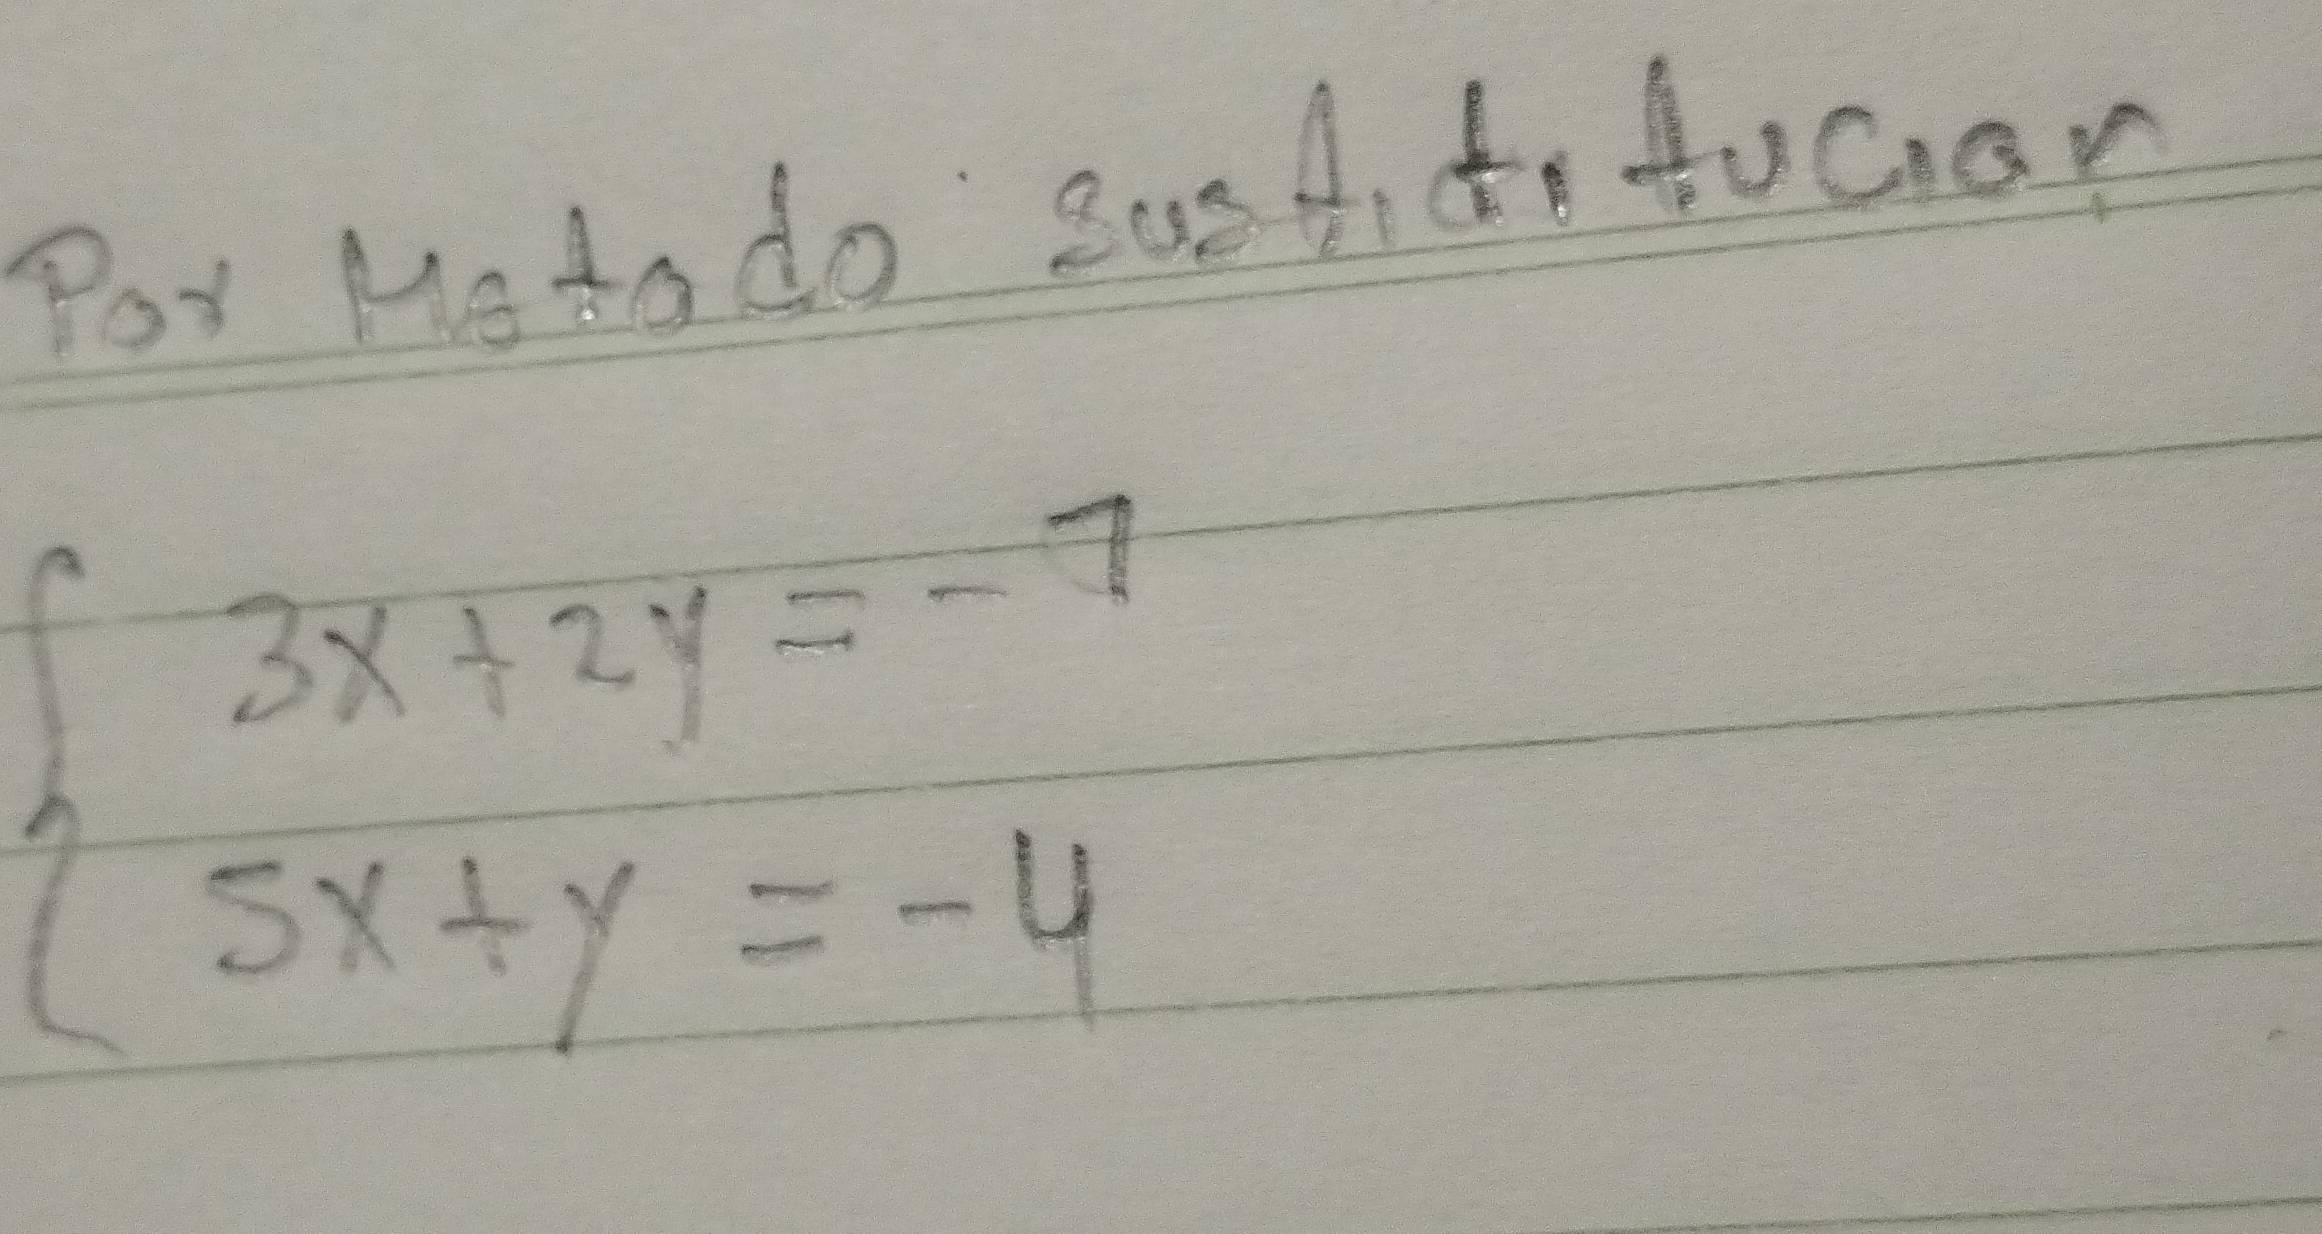 Por Metodo sustititucion
3x + 2y = - 7
5x + y = - 4